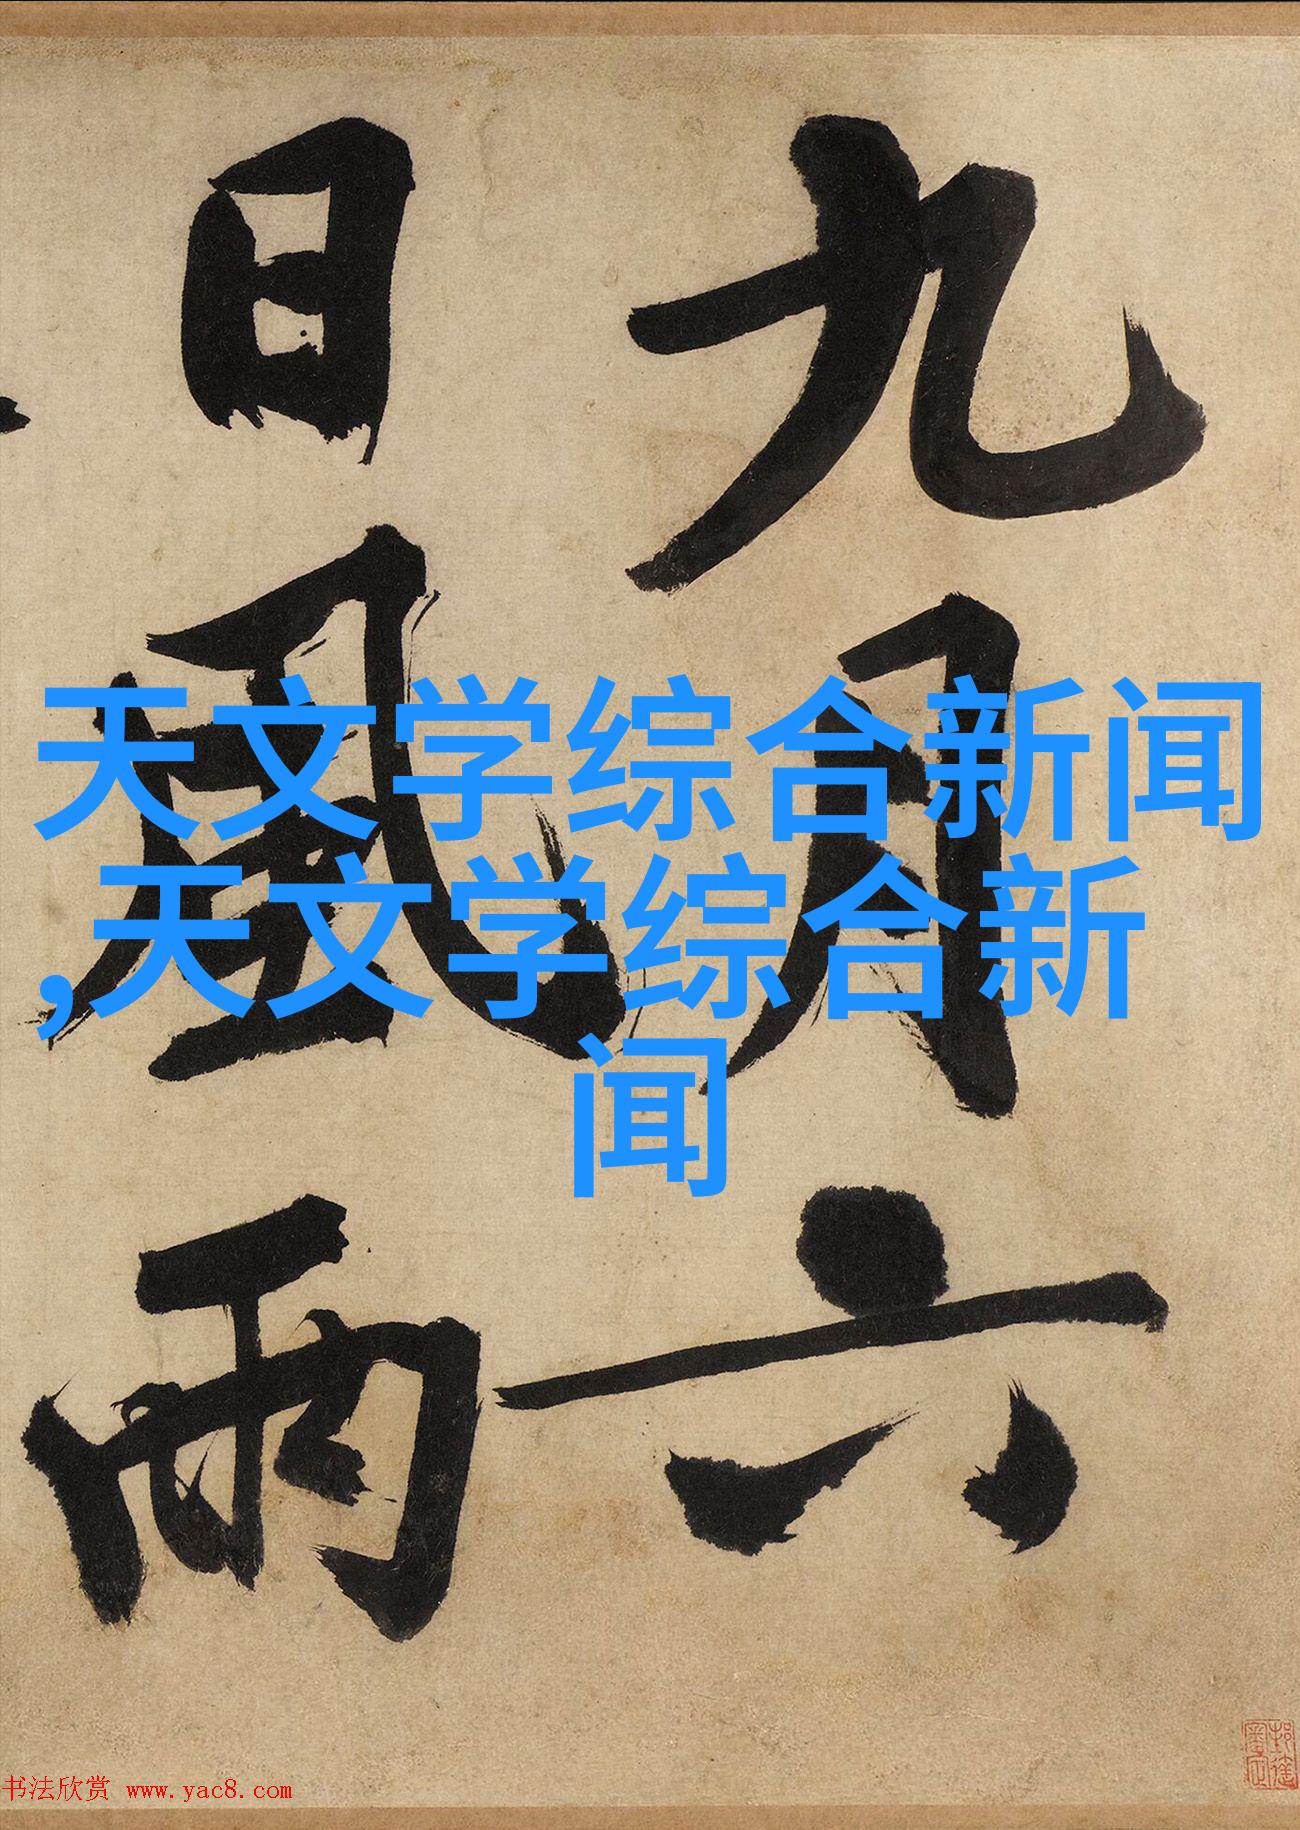 九月六
日風雨
天文学综合新闻
,天文学综合新
闻
书法欣赏 www.yac8.com